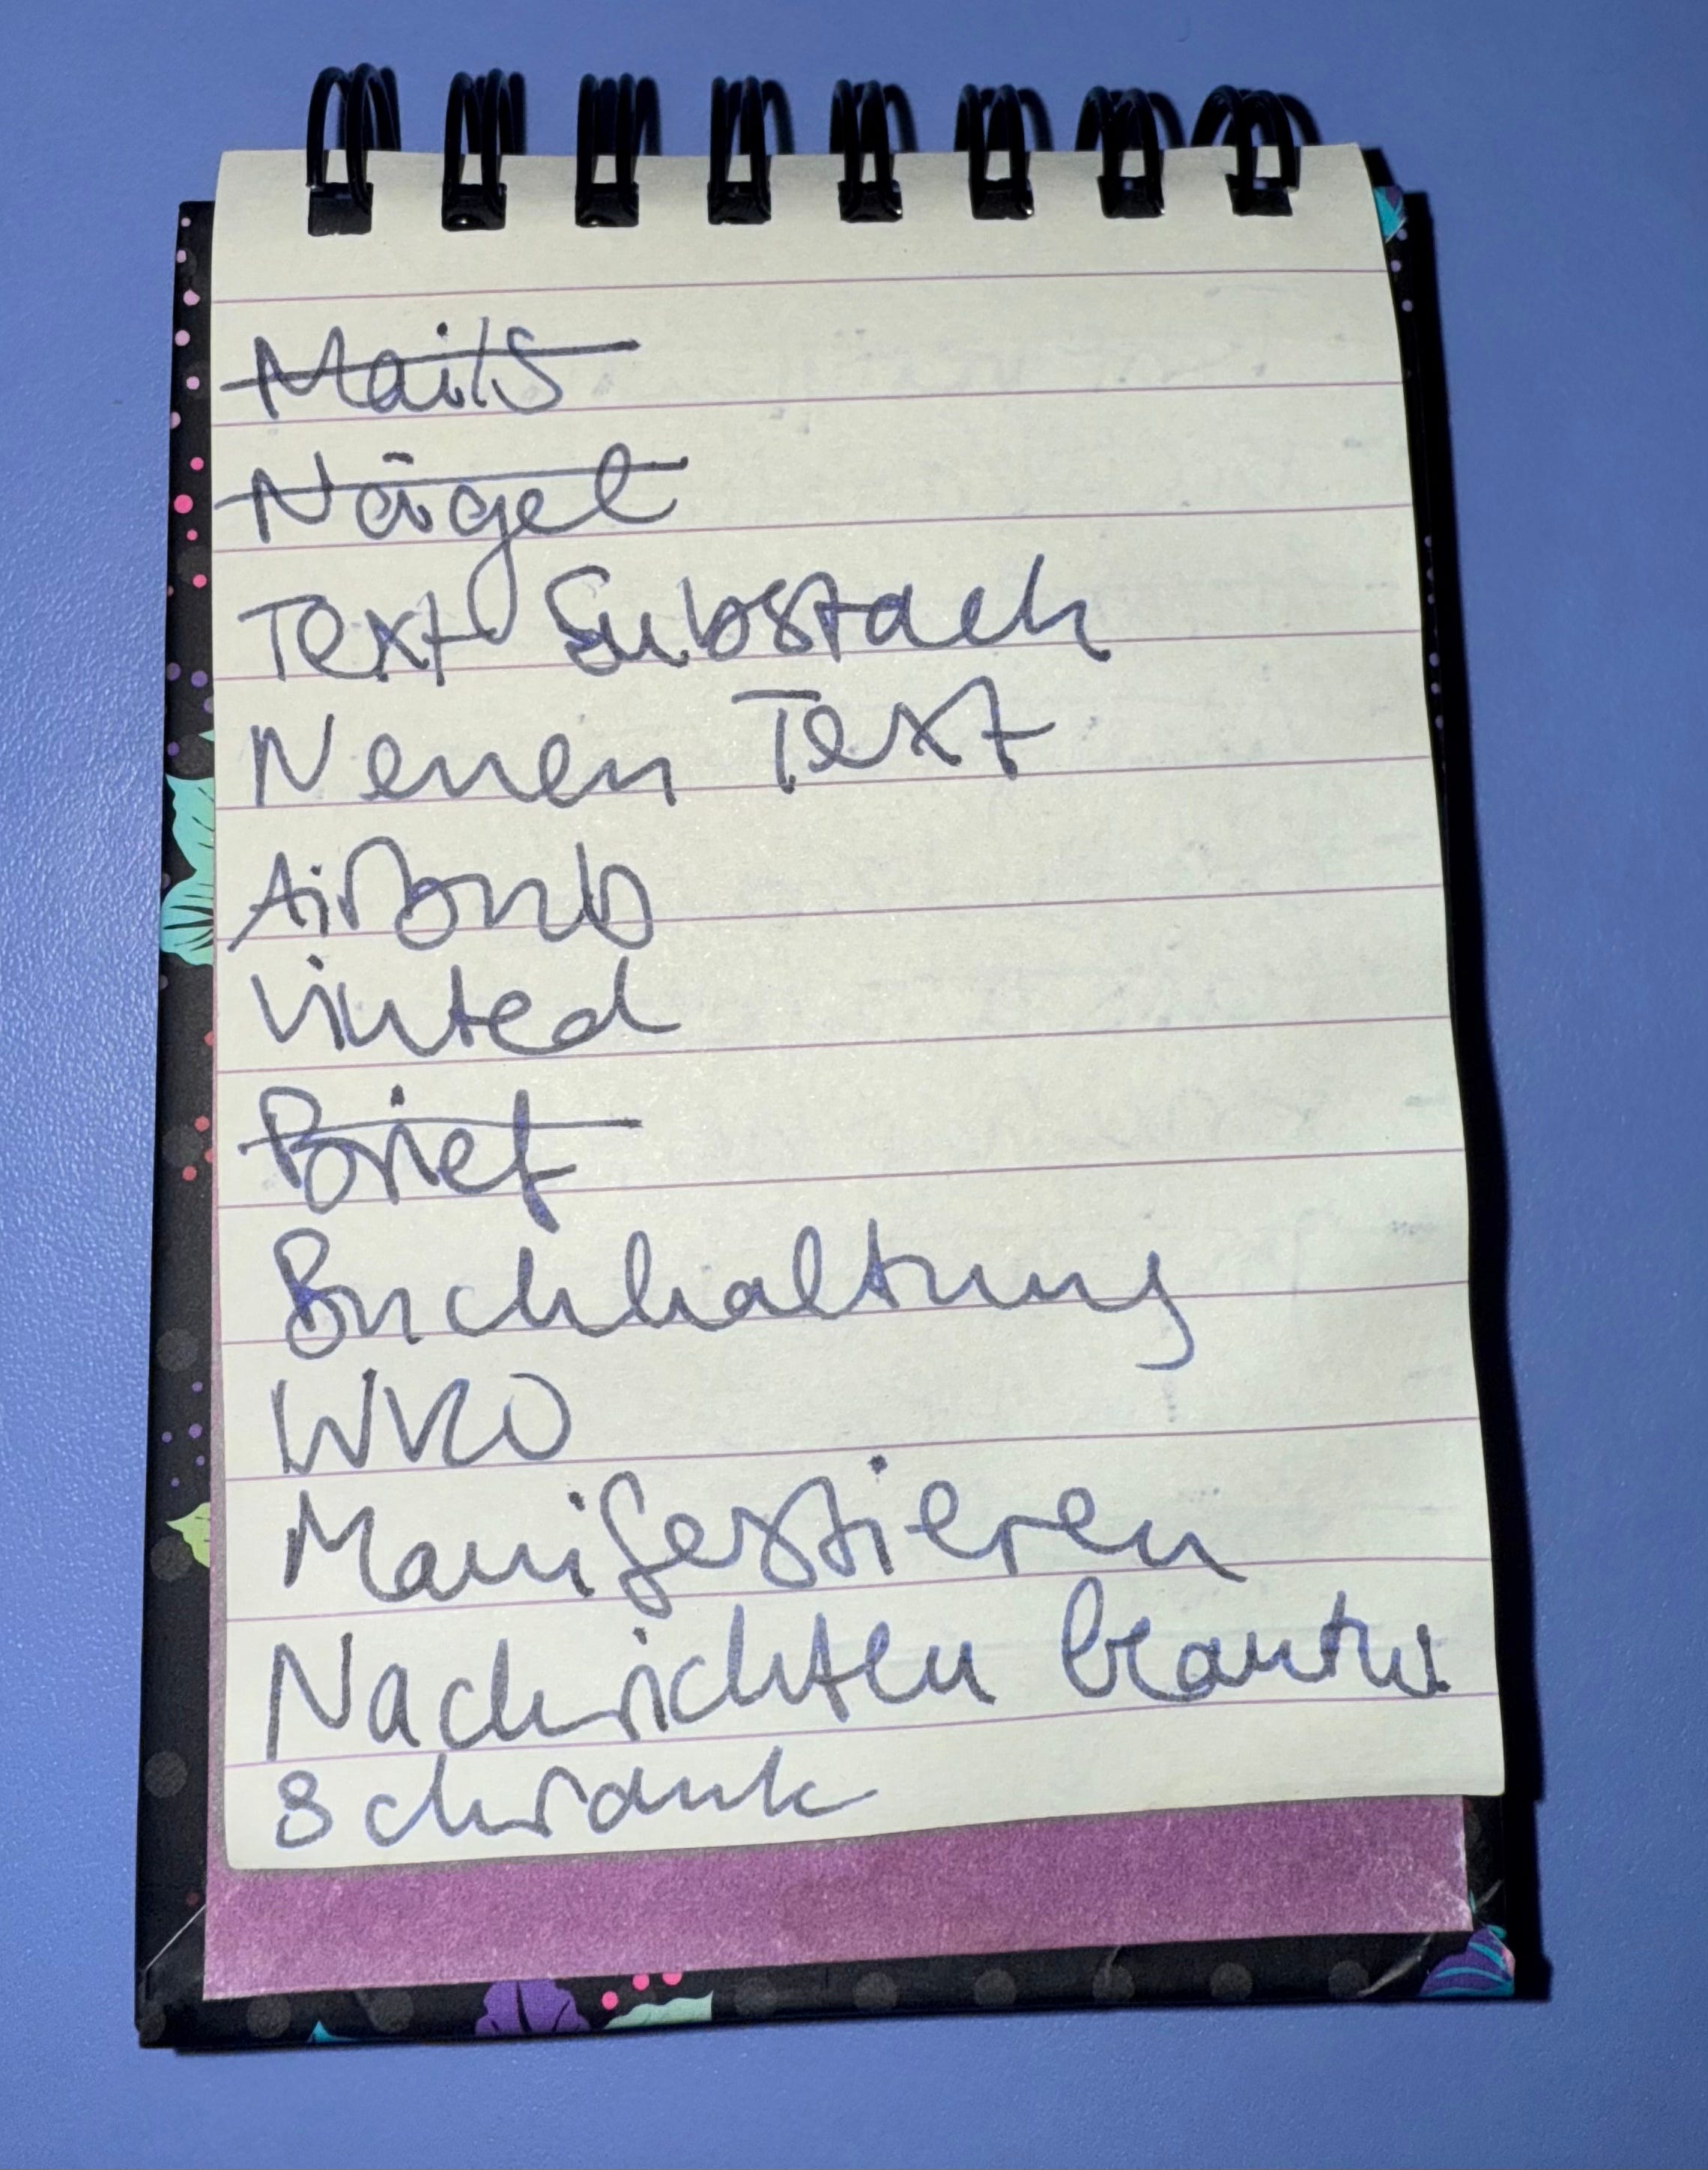 Mails
Nägel
Text Substack
Neuen Text
Airbnb
Vinted
Brief
Buchhaltung
WKO
Manifestieren
Nachrichten beantw.
Schrank